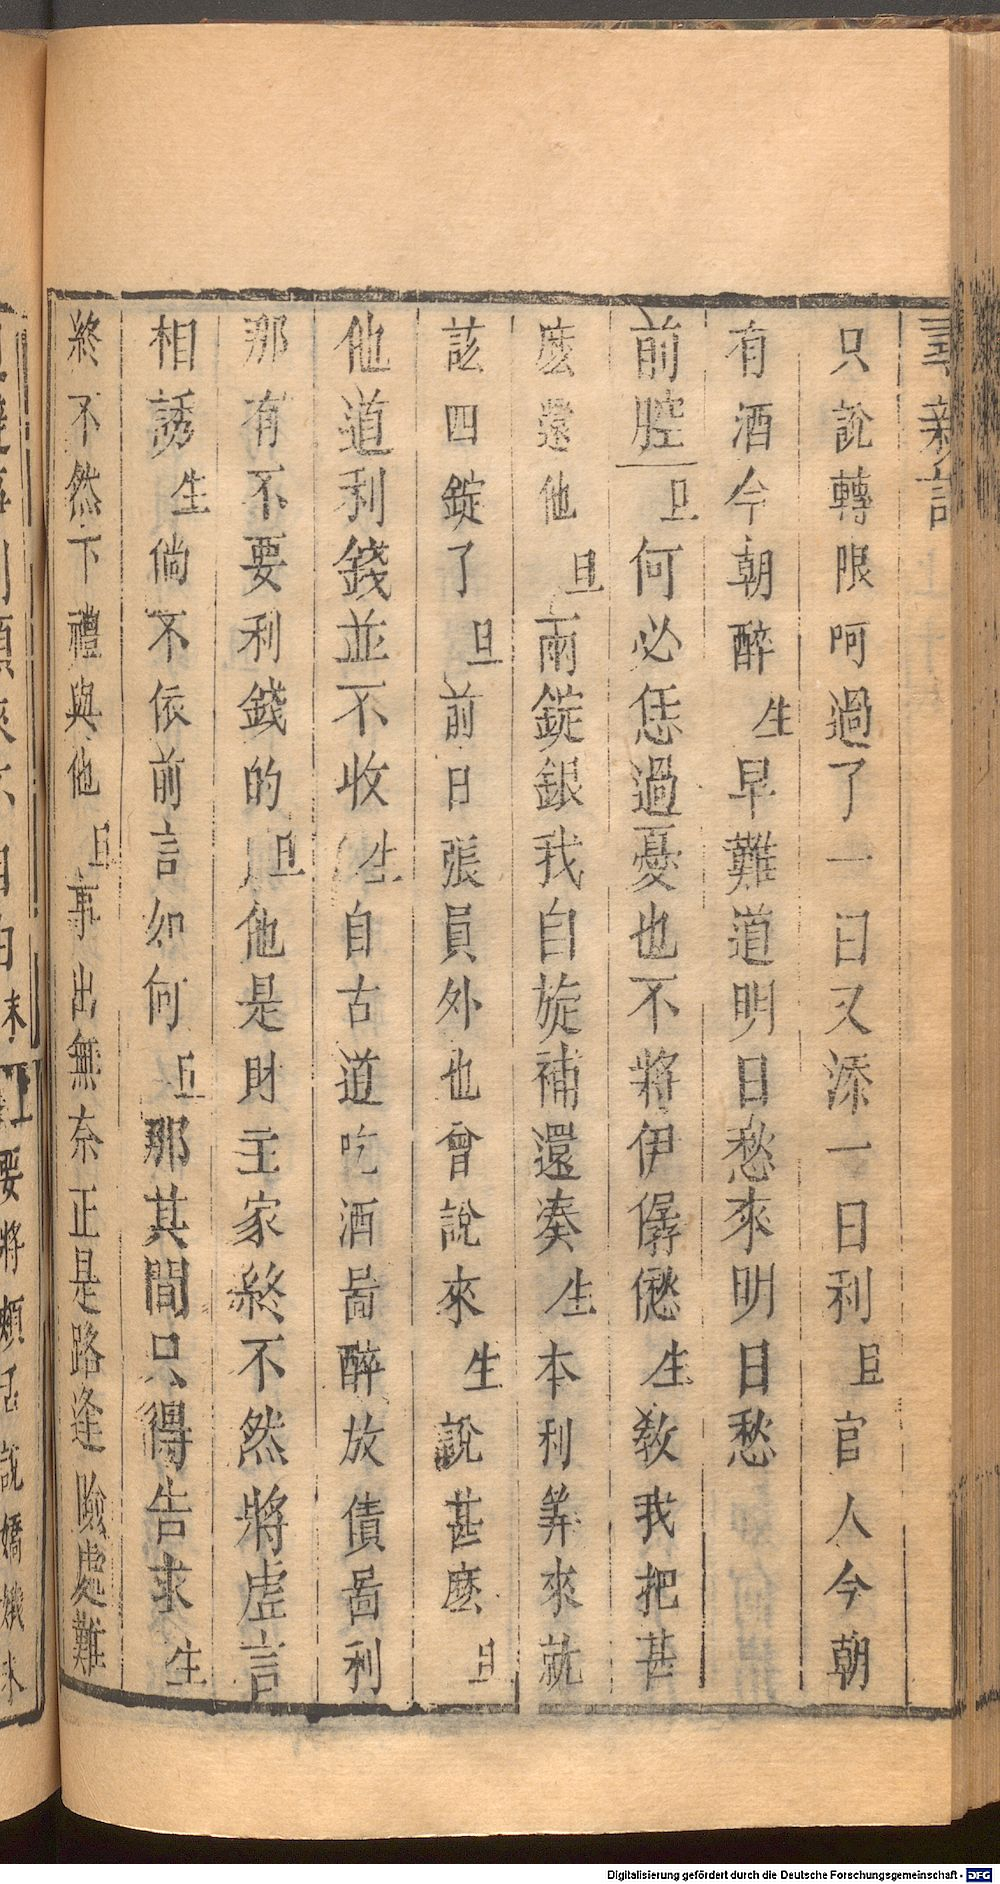 尋親記
只說轉限呵過了一日又添一日利旦官人今朝
有酒今朝醉生早難道明日愁來明日愁
前腔旦何必恁過憂也不將伊僝僽生教我把甚
麼還他旦兩錠銀我自旋補還湊生本利筭來就
該四錠了旦前日張員外也曾說來生說甚麼旦
他道利錢並不收生自古道吃酒啚醉放債啚利
那有不要利錢的旦他是財主家終不然將虛言
相誘生倘不依前言如何旦那其間只得告求生
終不然下禮與他旦事出無奈正是路逢險處難
Digitalisierung gefördert durch die Deutsche Forschungsgemeinschaft - DFG